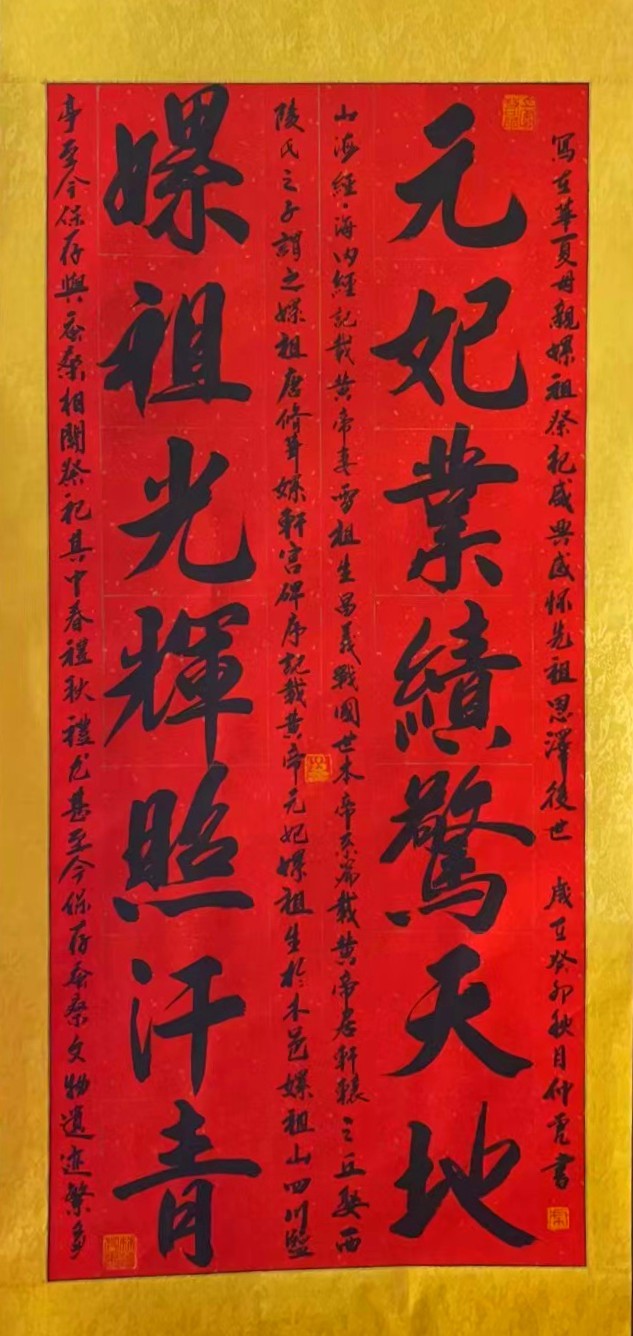 寫在華夏母親嫘祖祭祀盛典感怀先祖恩澤後世 歲在癸卯秋月仲 書
元妃業績驚天地
山海經·海内經記載黄帝妻雷祖生昌意戰國世本帝系篇載黄帝居軒轅之丘娶西
陵氏之子謂之嫘祖唐脩 嫘軒宫碑序記載黄帝元妃嫘祖生於本邑嫘祖山四川盬
嫘祖光輝照汗青
亭至今保存與蚕桑相關祭祀其中春禮秋禮尤甚至今保存蚕桑文物遺迹繁多